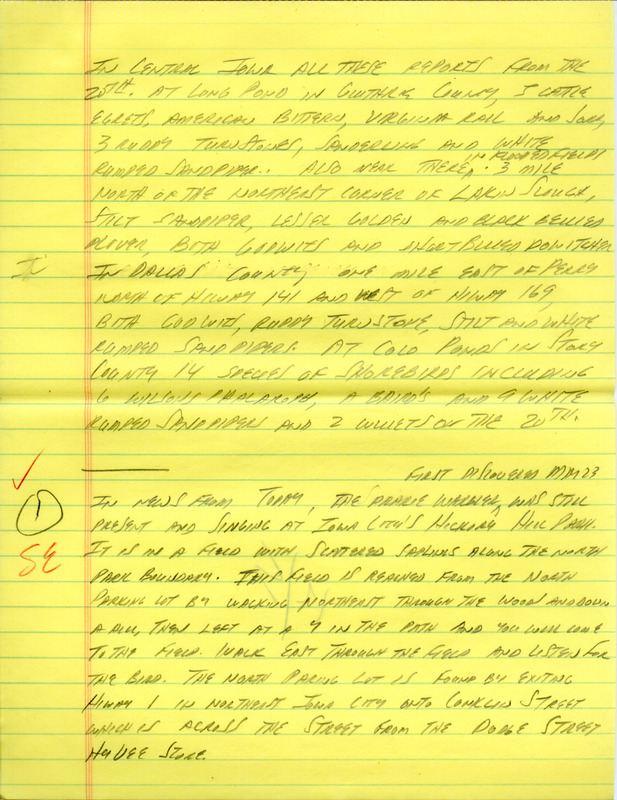 In Central Iowa all these reports from the
20th. At Long Pond in Guthrie County, 1 cattle
egrets, American Bittern, Virginia Rail and Sora,
3 Ruddy Turnstones, Sanderling and White
Rumped Sandpiper.. Also near there, in flooded fields . 3 mile
north of the northeast corner of Lakin Slough,
Stilt Sandpiper, Lesser Golden and Black Bellied
Plover, both Godwits and Short Billed Dowitcher
In Dallas County, one mile east of Perry
north of Hiway 141 and west of Hiway 169,
both Godwits, Ruddy Turnstone, Stilt and White
Rumped Sandpipers. At Colo Ponds in Story
County 14 species of shorebirds including
6 Wilsons Phalarope, a Baird's and 9 White
Rumped Sandpipers and 2 Willets on the 20th.
First discovered M M 23
1 In news from today, the Prairie Warbler, was still
present and singing at Iowa City's Hickory Hill Park.
SE It is in a field with scattered saplins along the north
park boundary. This field is reached from the north
parking lot by walking northeast through the wood and down
a hill, then left at a Y in the path and you will come
to the field. Walk east through the field and listen for
the bird. The north paring lot is found by exiting
Hiway 1 in northeast Iowa City onto Conklin Street
which is across the street from the Dodge Street
HyVee Store.